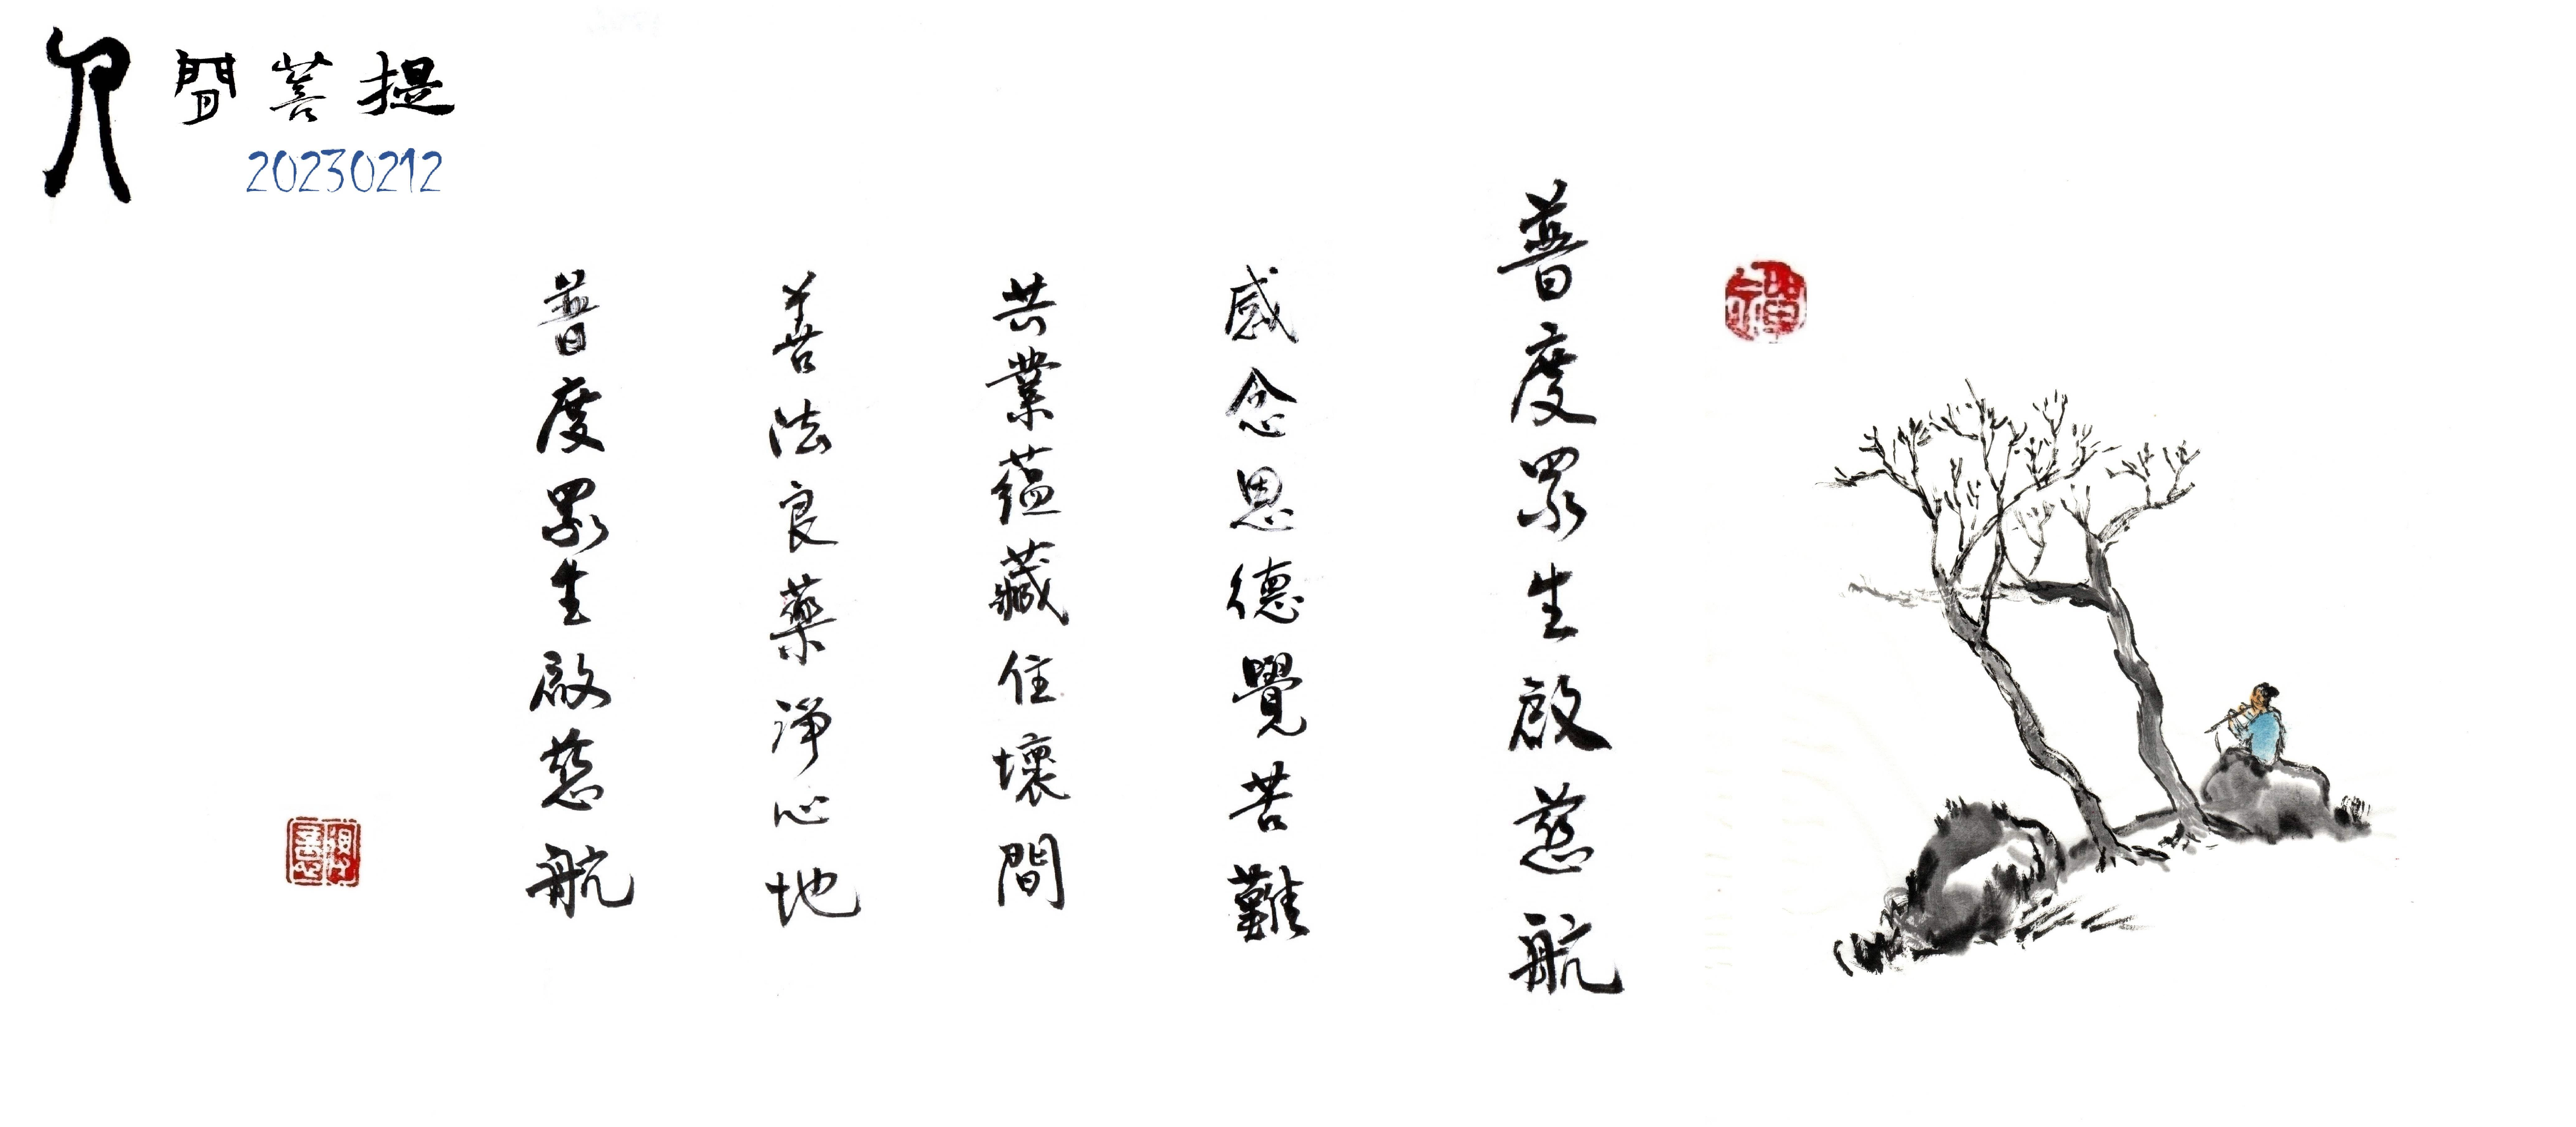 人間菩提
20230212
普度眾生啟慈航
感念恩德覺苦難
共業蘊藏住壞間
善法良藥淨心地
普度眾生啟慈航
禪